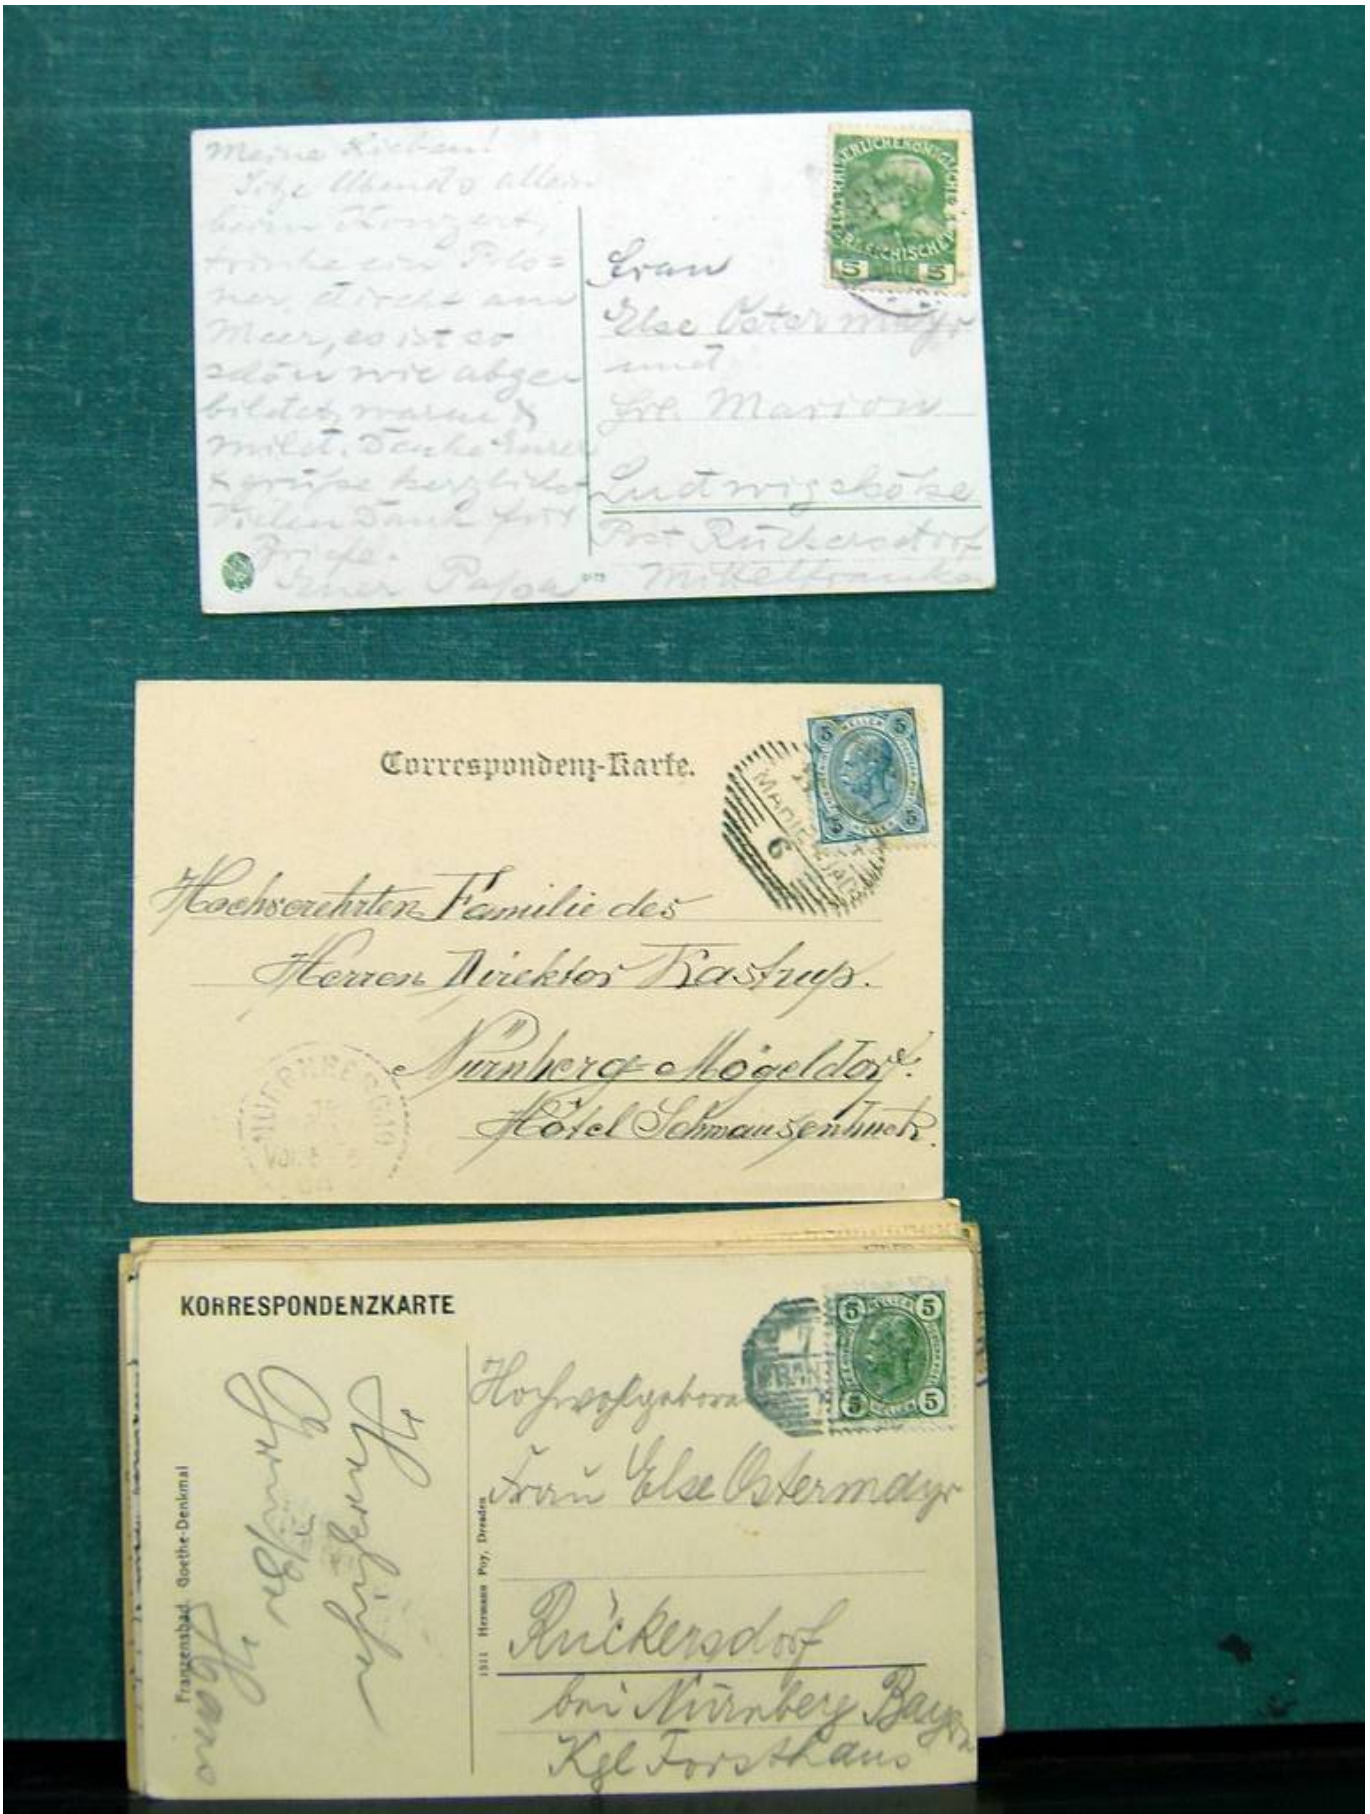 Meine Lieben!
Sitze Abends allein
beim Konzert,
trinke ein Pils=
ner, direkt am
Meer, es ist so
schön wie abge=
bildet, warm &
mild. Danke Eurer
& grüße herzlichst
Vielen Dank für
Briefe.
Euer Papa
KAISERLICHE KÖNIGLICHE
ÖSTERREICHISCHE
5 5
Frau
Else Ostermayr
und
Frl. Marion
Ludwigshöhe
Post Rückersdorf
Mittelfranken
Correspondenz-Karte.
5 HELLER 5
5 HELLER 5
MARIENBAD
6
Hochverehrten Familie des
Herren Direktor Kastrup.
Nürnberg-Mögeldorf.
Hôtel Schmausenbuck.
NUERNBERG
KORRESPONDENZKARTE
5 HELLER 5
5 HELLER 5
FRAN
Franzensbad. Goethe-Denkmal
Hans
1911 Hermann Poy, Dresden
Hochwohlgeboren
Frau Else Ostermayr
Rückersdorf
bei Nürnberg Bayern
Kgl Forsthaus